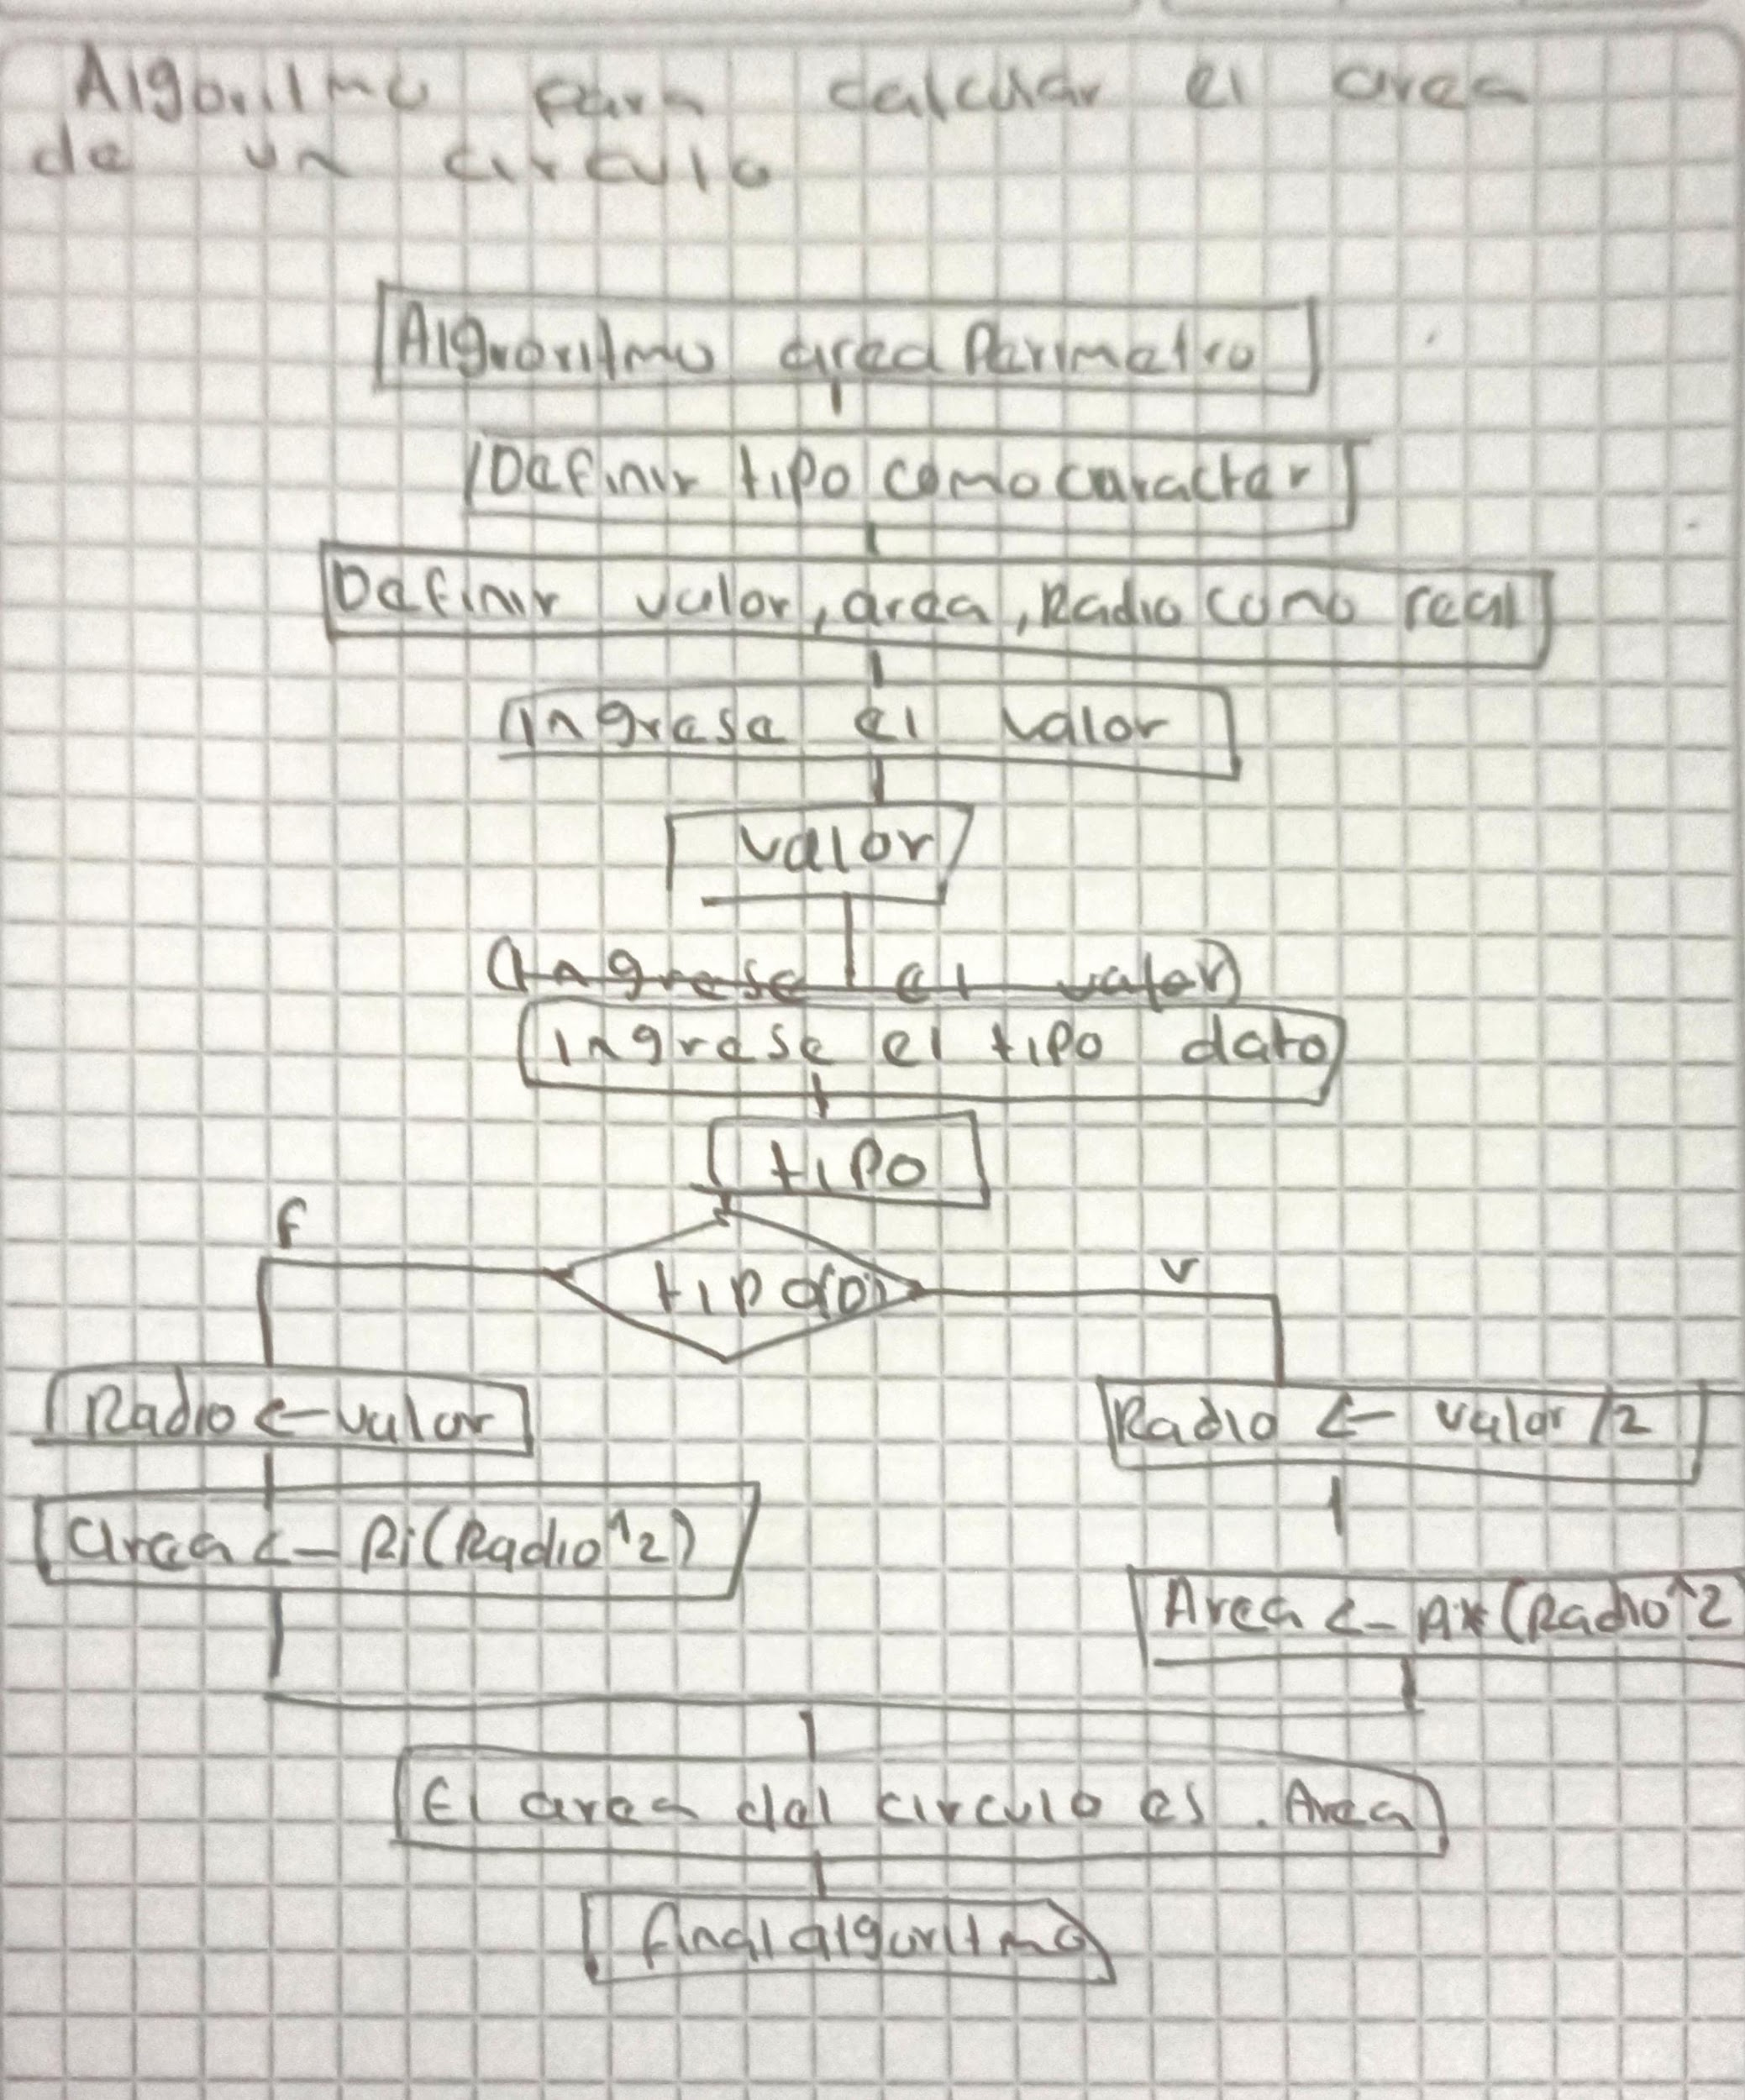 Algoritmo para calcular el area
de un circulo
Algroritmo area Perimetro
Definir tipo como caracter
Definir valor, area, Radio como real
Ingrese el valor
valor
Ingrese el valor
Ingrese el tipo dato
tipo
f
v
tipo(D)
Radio <- valor
Radio <- valor /2
area <- Pi(Radio^2)
Area <- Pi*(Radio^2
El area del circulo es . Area
final algoritmo